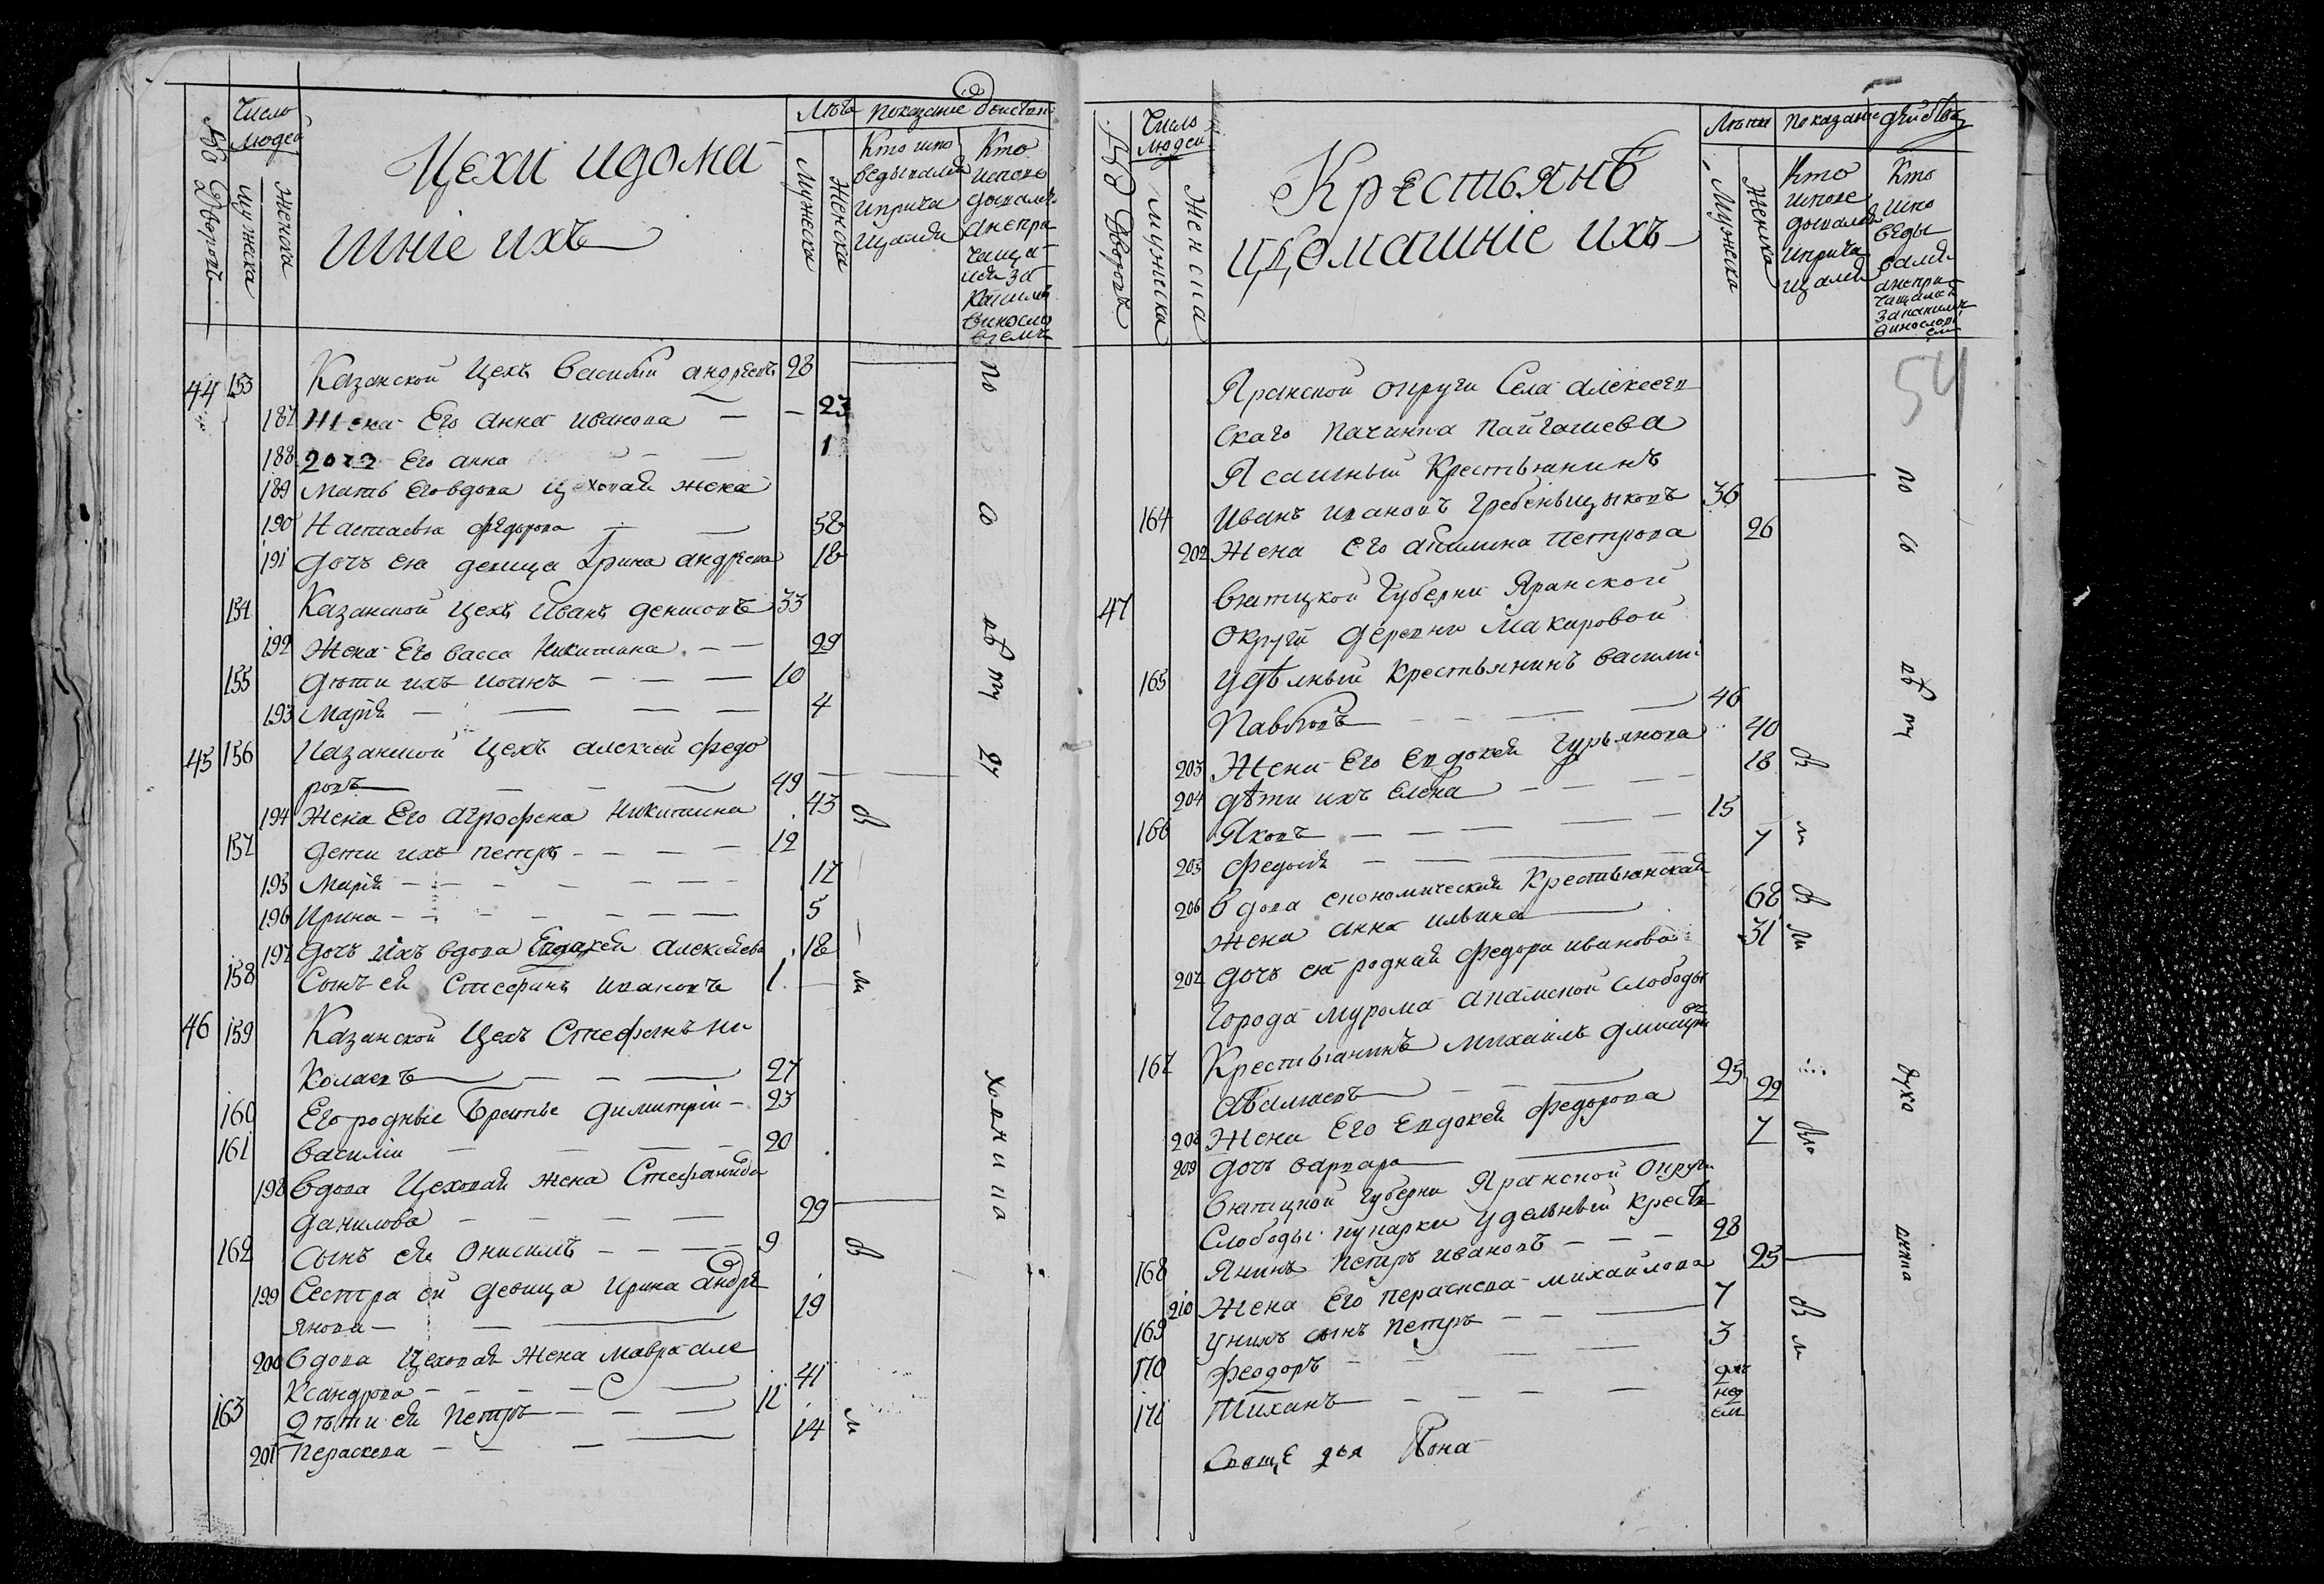 Число
людей
Во Дворомъ
Мужеска
Женска
Цехи и дома
шніе ихъ
Мужеска
Женска
Показаніе
Кто испо
ведывался
и прича
щался
Кто
испове
дывался
а не при
чаща
лся за
какимъ
винословіемъ
44 153 Казанской Цехъ Василій андреевъ 28
187 Жена Его анна иванова — — 23
188 дочь Его анна — — 1
189 Мать Его вдова цеховая жена
190 Настасья федорова — — 58
191 дочь ея девица Ирина андреева 18
154 Казанской цехъ Иванъ денисовъ 33
192 Жена Его васса Никитина — — 29
155 дети ихъ иоанъ — — — 10
193 Марія — — — — 4
45 156 Казанской Цехъ алексей федо
ровъ — — — 49
194 Жена Его агрофена Никитина 43
157 дети ихъ петръ — — — — 12
195 Марія — — — — — 17
196 Ирина — — — — — 5
197 дочь ихъ вдова Евдокея алексеева 18
158 Сынъ ея Стефанъ ивановъ 1
46 159 Казанской Цехъ Стефанъ Ни
колаевъ — — — 27
160 Его родные братье димитрій — 23
161 василій — — — — 20
198 Вдова Цеховая жена Стефанида
данилова — — — — 29
162 Сынъ ея Онисимъ — — — — 9
199 Сестра ея девица Ирина андре
янова — — — 19
200 Вдова Цеховая Жена Мавра але
ксандрова — — — — 41
163 Дети ея Петръ — — — 12
201 Пераскева — — — — 14
в
м
в
м
по со
ту
Число
людей
Во Дворовъ
Мужеска
Женска
Крестьянѣ
и Домашніе ихъ
Мужеска
Женска
Показаніе действа
Кто
испове
дывался
и прича
щался
Кто
испо
веды
вался
а не при
чащался
за какимъ
винослові
емъ
54
Яранской округи Села алексеев
скаго Пачинка Пайгашева
Ясашный Крестьянинъ
164 Иванъ ивановъ Гребеньщыковъ 36
202 Жена его акилина Петрова 26
47 Вятцкой Губерни Яранской
Округи деревни Макаровой
165 Удѣлный Крестьянинъ васили
Павловъ — — — 46
203 Жена Его Евдокея Гурьянова 40
204 дѣти ихъ Елена — — — 18
166 Яковъ — — — — — 15
205 Федосья — — — 7
206 Вдова економическая Крестьянская
жена анна ильина — 68
207 дочь ея родная федора иванова 31
Города Мурома Слободы
167 Крестьянинъ Михаилъ
— — — 25
208 Жена Его Евдокея федорова 29
209 дочь варвара — — 7
Вятцкой Губерни Яранской Округи
Слободы кукарки Удельный кресть
168 янинъ Петръ ивановъ — — — 28
210 Жена Его пераскева михайлова 25
169 У нихъ сынъ Петръ — — — 7
170 Феодоръ — — — — 3
171 Тиханъ — — — —
в
м
в
м
в м
по со
духо